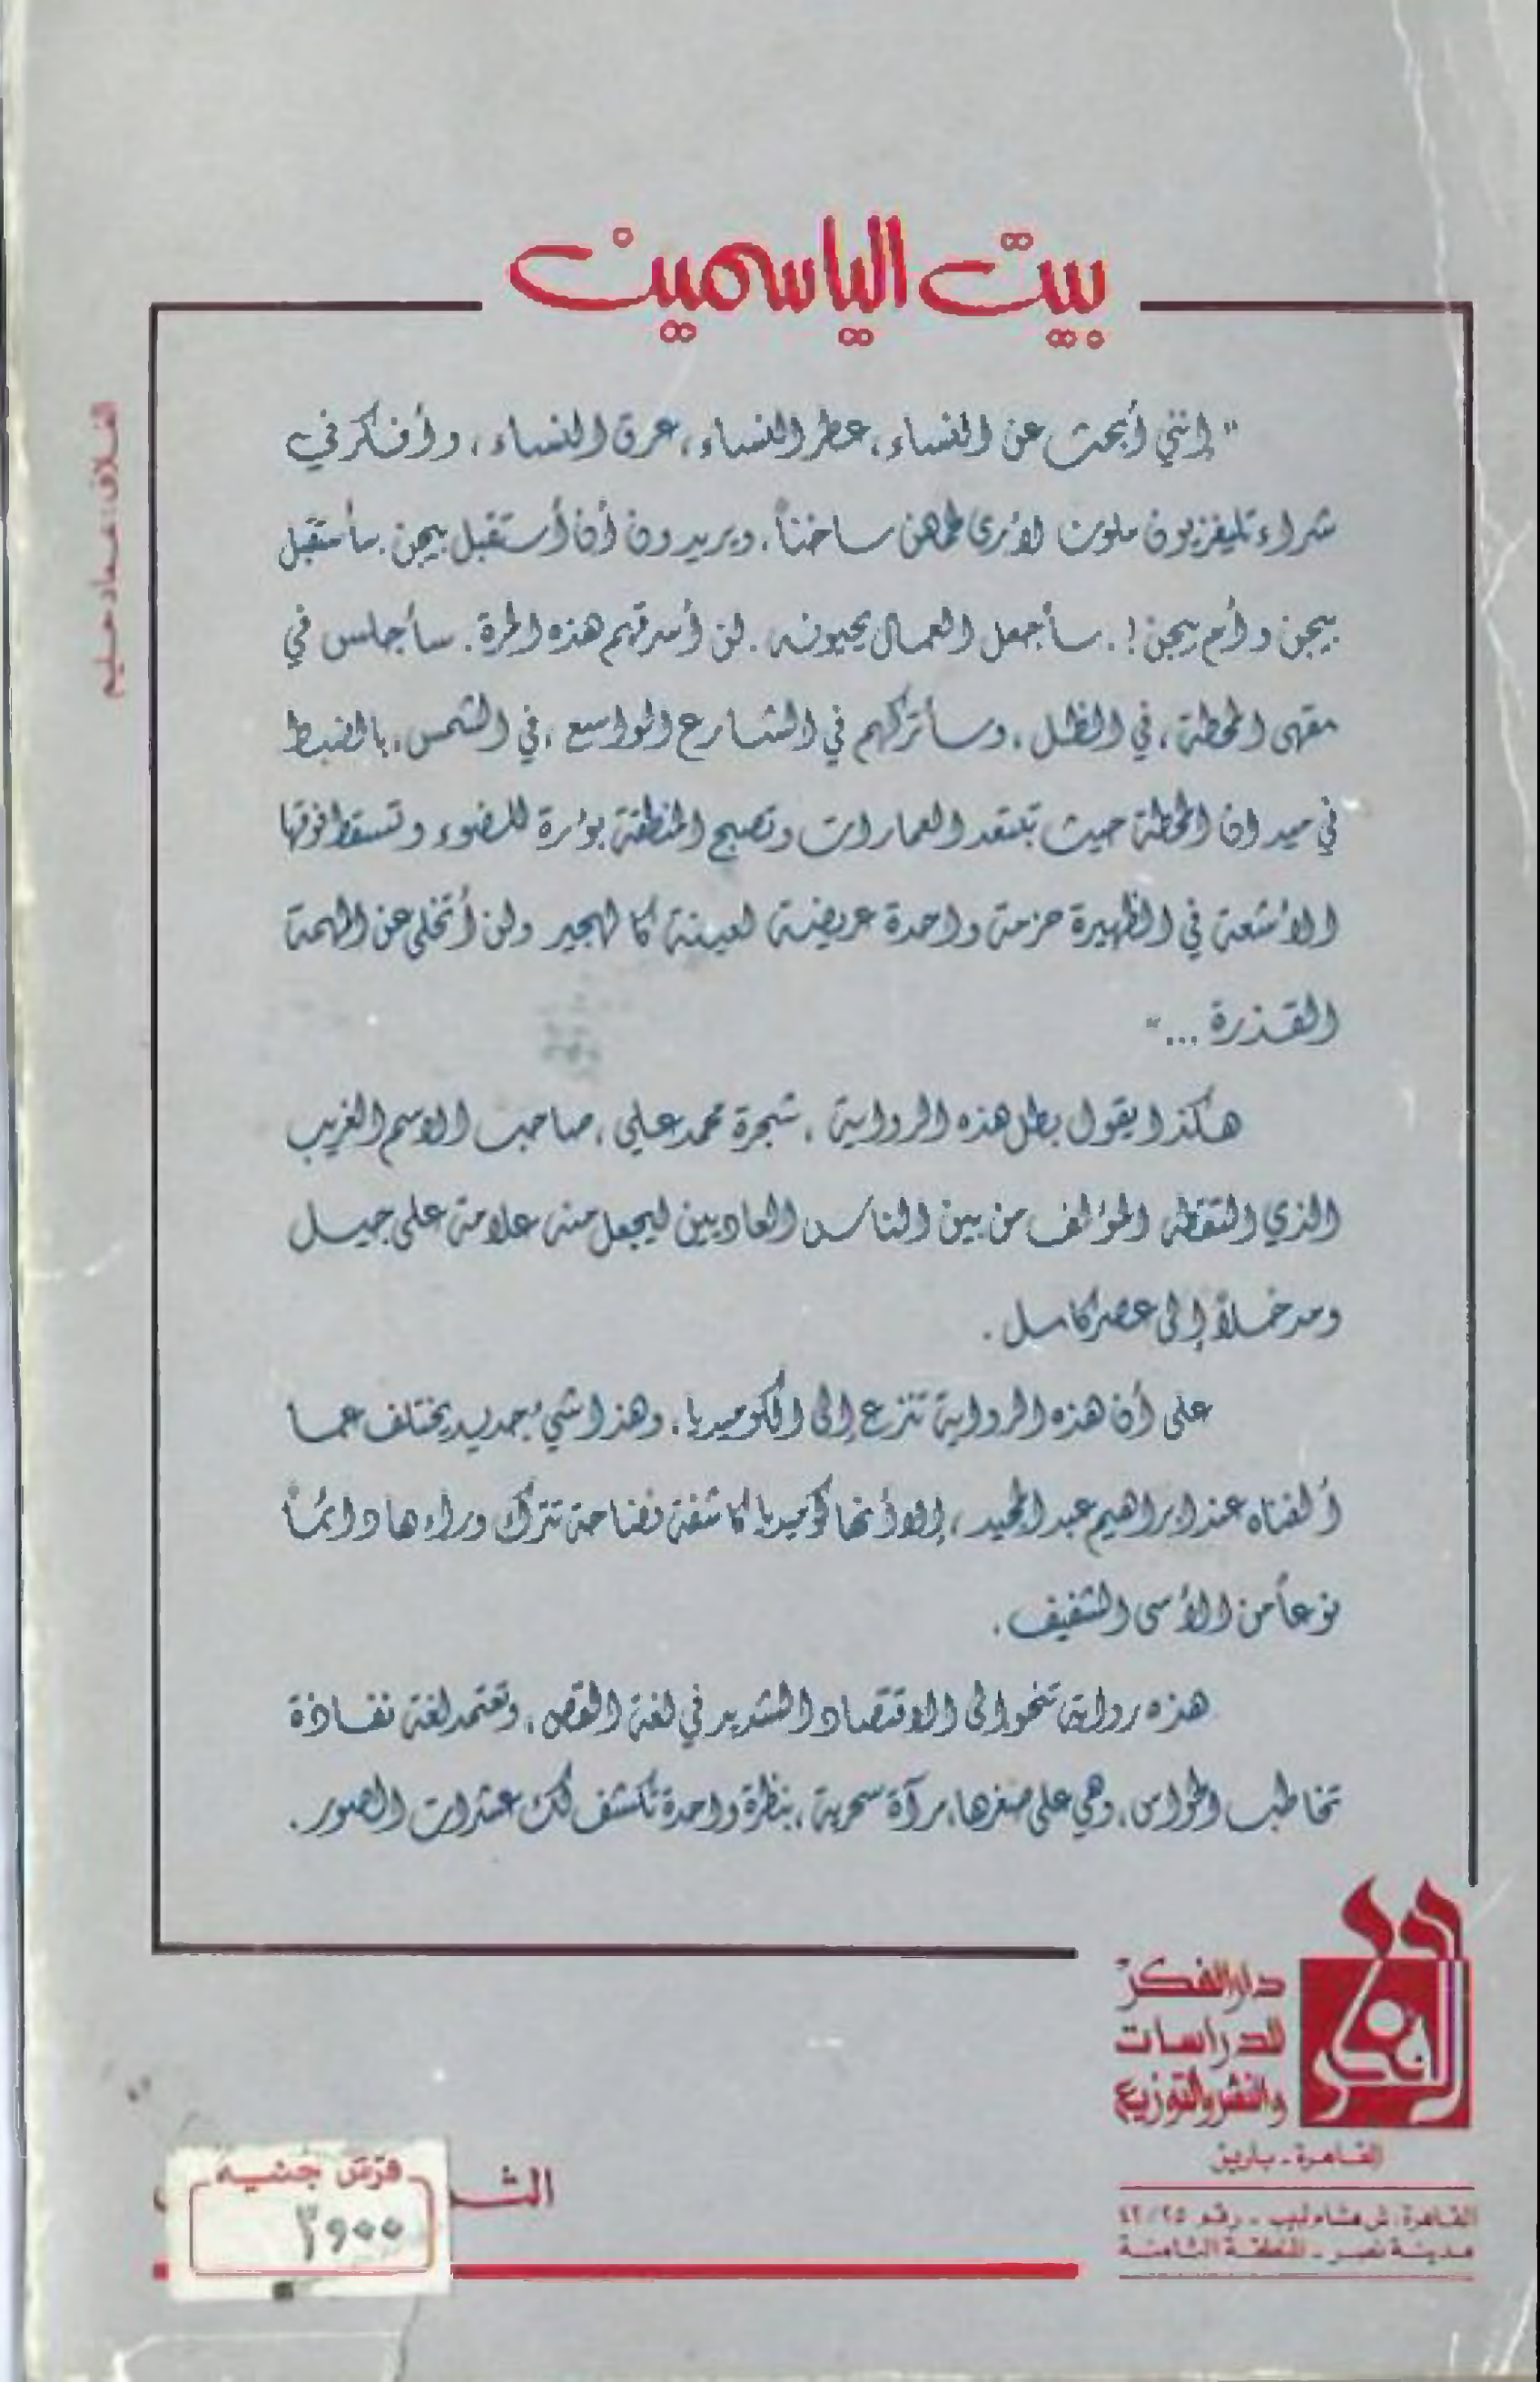 بيت الياسمين
" إنني أبحث عن النساء، عطر النساء، عرق النساء، وأفكر في
شراء تليفزيون ملون لأرى لحمهن ساخناً، ويريدون أن أستقبل بيجن. سأستقبل
بيجن وأم بيجن !. سأجعل العمال يحيونه. لن أسرقهم هذه المرة. سأجلس في
مقهى المحطة، في الظل، وسأتركهم في الشارع الواسع، في الشمس، بالضبط
في ميدان المحطة حيث تبتعد العمارات وتصبح المنطقة بؤرة للضوء وتسقط فوقها
الأشعة في الظهيرة حزمة واحدة عريضة لعينة كالهجير ولن أتخلى عن المهمة
القذرة ..."
هكذا يقول بطل هذه الرواية، شجرة محمد علي، صاحب الاسم الغريب
الذي التقطه المؤلف من بين الناس العاديين ليجعل منه علامة على جيل
ومدخلاً إلى عصر كامل.
على أن هذه الرواية تنزع إلى الكوميديا، وهذا شيء جديد يختلف عما
ألفناه عند ابراهيم عبد المجيد، إلا أنها كوميديا كاشفة فضاحة تترك وراءها دائماً
نوعاً من الأسى الشفيف.
هذه رواية تنحو إلى الاقتصاد الشديد في لغة القص، وتعتمد لغة نفاذة
تخاطب الحواس، وهي على صغرها، مرآة سحرية، بنظرة واحدة تكشف لك عشرات الصور.
الغلاف: عماد حليم
الفكر
دار الفكر
للدراسات
والنشر والتوزيع
القاهرة - باريس
القاهرة: ش هشام لبيب - رقم ٤٢/٢٥
مدينة نصر - المنطقة الثامنة
الثمـ
قرش جنيه
٣٫٠٠